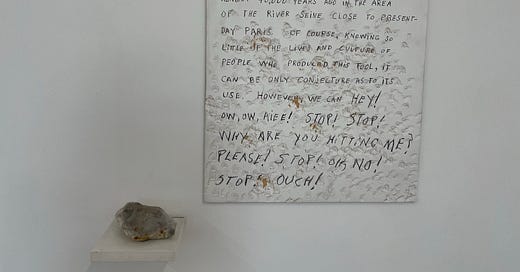 ALMOST 40,000 YEARS AGO IN THE AREA
OF THE RIVER SEINE CLOSE TO PRESENT-
DAY PARIS. OF COURSE, KNOWING SO
LITTLE OF THE LIVES AND CULTURE OF
PEOPLE WHO PRODUCED THIS TOOL, IT
CAN BE ONLY CONJECTURE AS TO ITS
USE. HOWEVER, WE CAN HEY!
OW, OW, AIEE! STOP! STOP!
WHY ARE YOU HITTING ME?
PLEASE! STOP! OH NO!
STOP! OUCH!